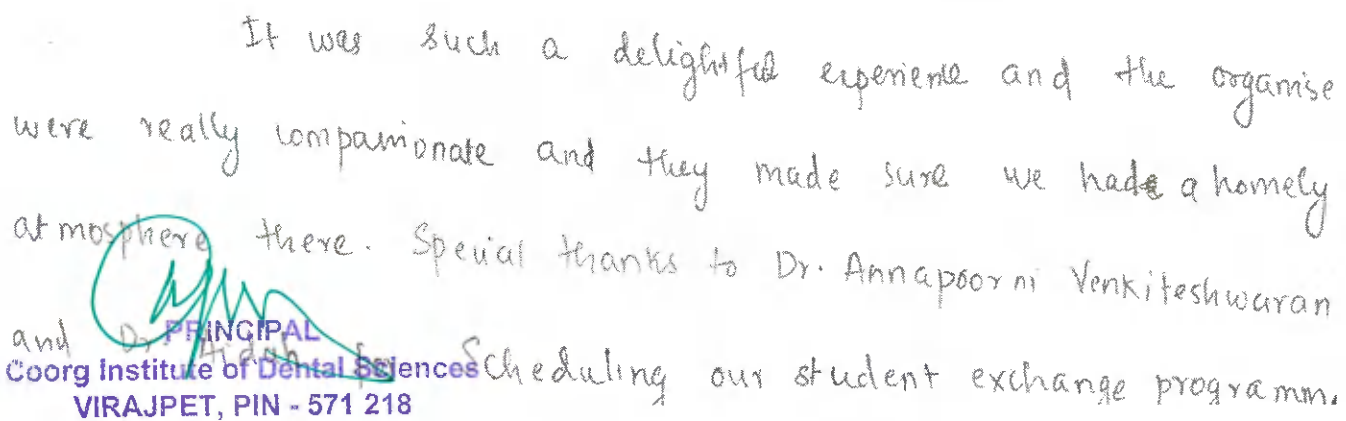 It was such a delightful experience and the organise
were really compassionate and they made sure we had a homely
atmosphere there. Special thanks to Dr. Annapoorni Venkiteshwaran
and Dr. Scheduling our student exchange programm.
PRINCIPAL
Coorg Institute of Dental Sciences
VIRAJPET, PIN - 571 218